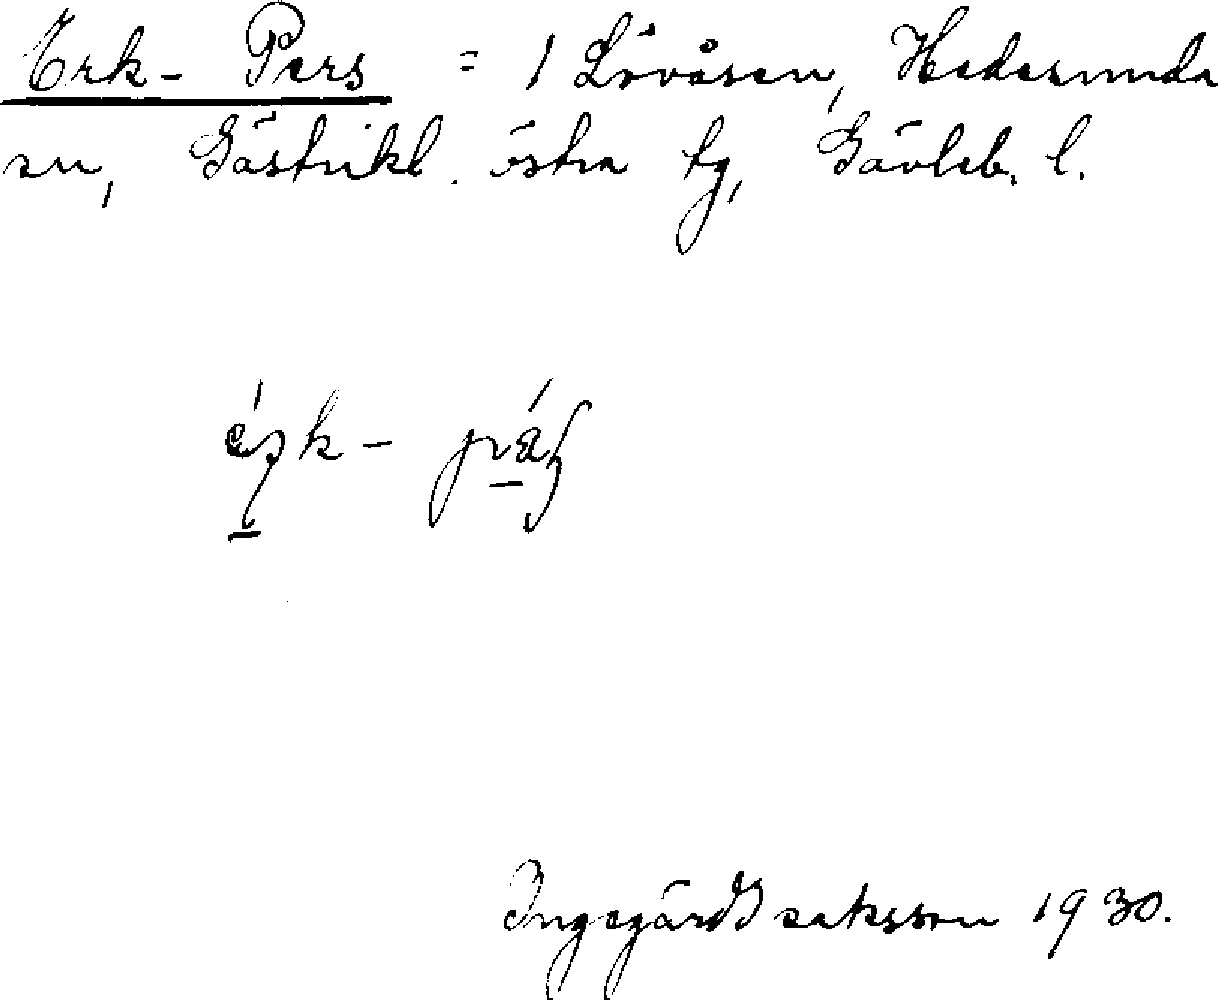 Erk-Pers = 1 Lövåsen, Hedesunda
sn, Gästrikl. östra tg, Gävleb. l.
Ingegärd Isaksson 1930.